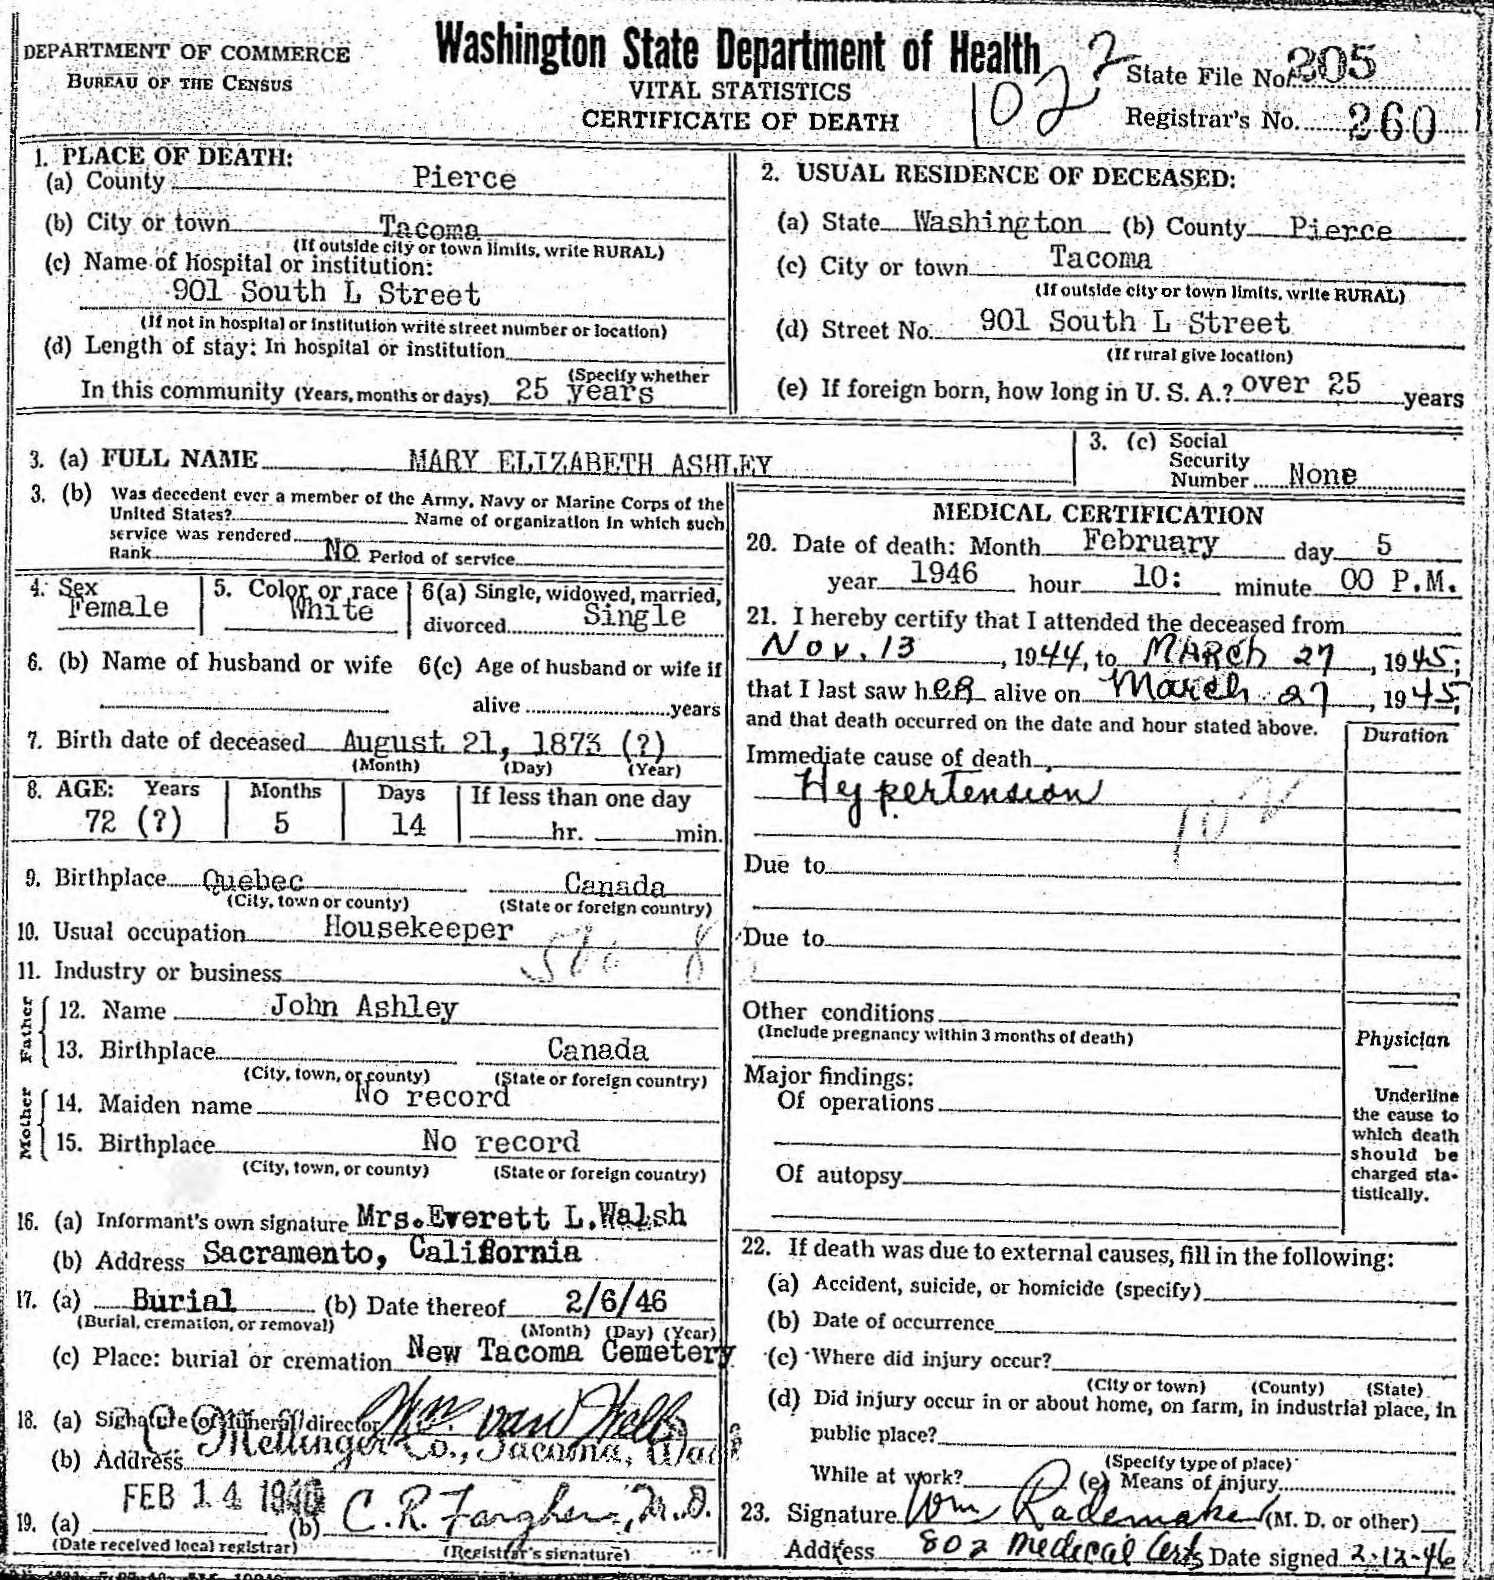 DEPARTMENT OF COMMERCE
BUREAU OF THE CENSUS
Washington State Department of Health
VITAL STATISTICS
CERTIFICATE OF DEATH
102
State File No. 205
Registrar's No. 260
1. PLACE OF DEATH:
(a) County Pierce
(b) City or town Tacoma
(If outside city or town limits, write RURAL)
(c) Name of hospital or institution:
901 South L Street
(If not in hospital or institution write street number or location)
(d) Length of stay: In hospital or institution
(Specify whether
In this community (Years, months or days) 25 years
2. USUAL RESIDENCE OF DECEASED:
(a) State Washington (b) County Pierce
(c) City or town Tacoma
(If outside city or town limits, write RURAL)
(d) Street No. 901 South L Street
(If rural give location)
(e) If foreign born, how long in U. S. A.? over 25 years
3. (a) FULL NAME MARY ELIZABETH ASHLEY
3. (c) Social
Security
Number None
3. (b) Was decedent ever a member of the Army, Navy or Marine Corps of the
United States? Name of organization in which such
service was rendered
Rank No Period of service
4. Sex Female
5. Color or race White
6(a) Single, widowed, married,
divorced Single
6. (b) Name of husband or wife 6(c) Age of husband or wife if
alive years
7. Birth date of deceased August 21, 1873 (?)
(Month) (Day) (Year)
8. AGE: Years Months Days If less than one day
72 (?) 5 14 hr. min.
9. Birthplace Quebec Canada
(City, town or county) (State or foreign country)
10. Usual occupation Housekeeper
11. Industry or business
Father
12. Name John Ashley
13. Birthplace Canada
(City, town, or county) (State or foreign country)
Mother
14. Maiden name No record
15. Birthplace No record
(City, town, or county) (State or foreign country)
16. (a) Informant's own signature Mrs. Everett L. Walsh
(b) Address Sacramento, California
17. (a) Burial (b) Date thereof 2/6/46
(Burial, cremation, or removal) (Month) (Day) (Year)
(c) Place: burial or cremation New Tacoma Cemetery
18. (a) Signature of funeral director Wm
(b) Address Mellinger Co., Tacoma,
FEB 14
19. (a) (b) C. R. M.D.
(Date received local registrar) (Registrar's signature)
MEDICAL CERTIFICATION
20. Date of death: Month February day 5
year 1946 hour 10: minute 00 P.M.
21. I hereby certify that I attended the deceased from
Nov. 13, 1944, to MARCH 27, 1945;
that I last saw her alive on March 27, 1945;
and that death occurred on the date and hour stated above.
Duration
Immediate cause of death
Hypertension
102
Due to
Due to
Other conditions
(Include pregnancy within 3 months of death)
Major findings:
Of operations
Of autopsy
Physician
Underline
the cause to
which death
should be
charged sta-
tistically.
22. If death was due to external causes, fill in the following:
(a) Accident, suicide, or homicide (specify)
(b) Date of occurrence
(c) Where did injury occur?
(City or town) (County) (State)
(d) Did injury occur in or about home, on farm, in industrial place, in
public place?
(Specify type of place)
While at work? (e) Means of injury
23. Signature Wm Rademaker (M. D. or other)
Address 802 Medical Arts Date signed 2-12-46